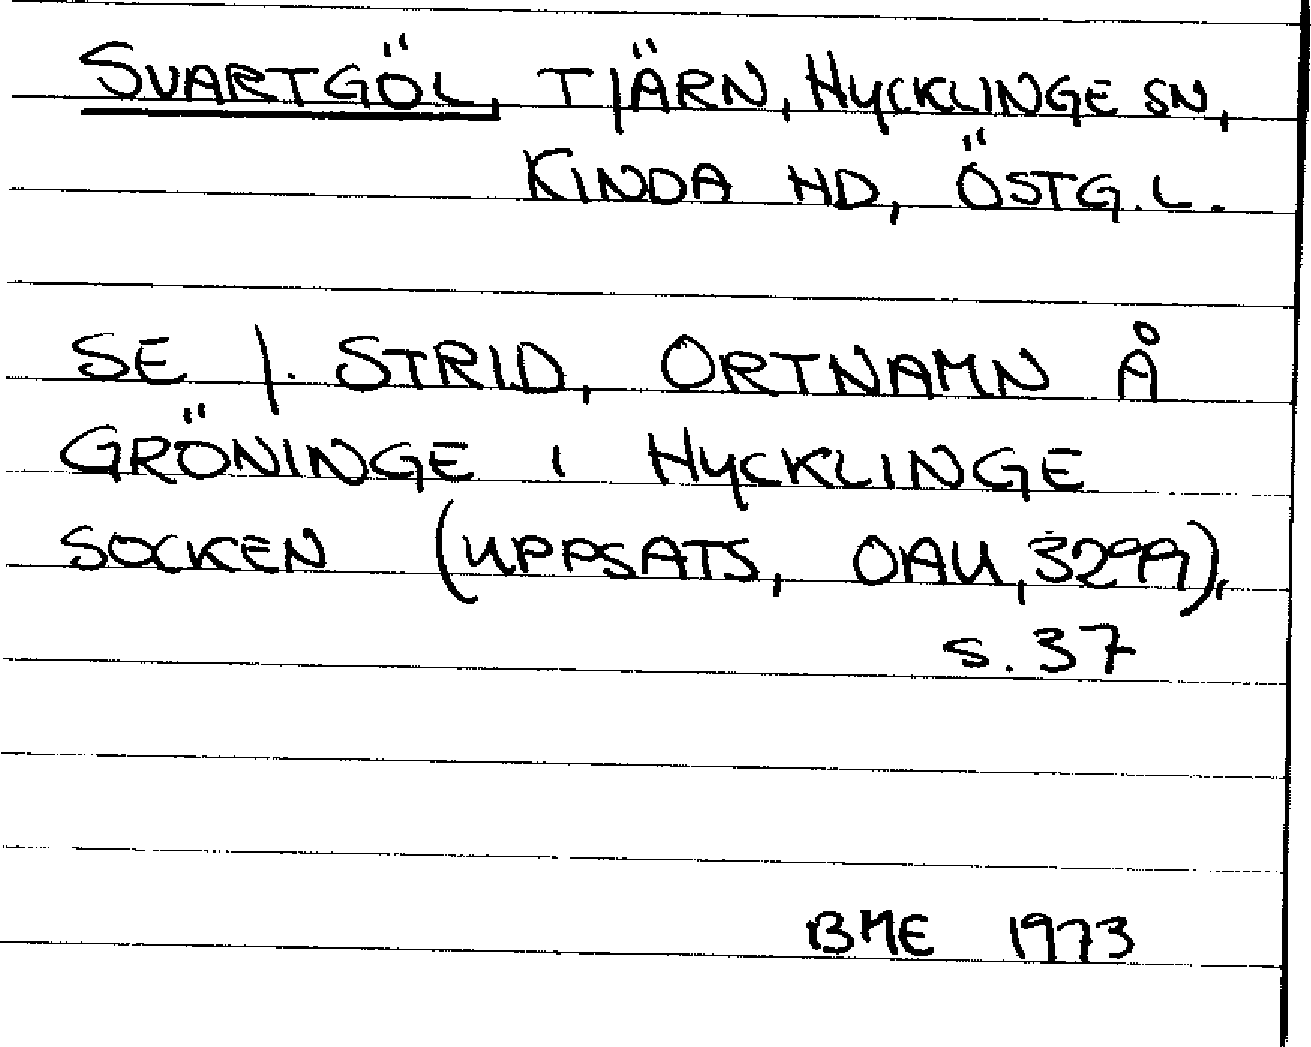 SVARTGÖL, TJÄRN, HYCKLINGE SN,
KINDA HD, ÖSTG.L.
SE J. STRID, ORTNAMN Å
GRÖNINGE I HYCKLINGE
SOCKEN (UPPSATS, OAU, 3299),
S. 37
BME 1973